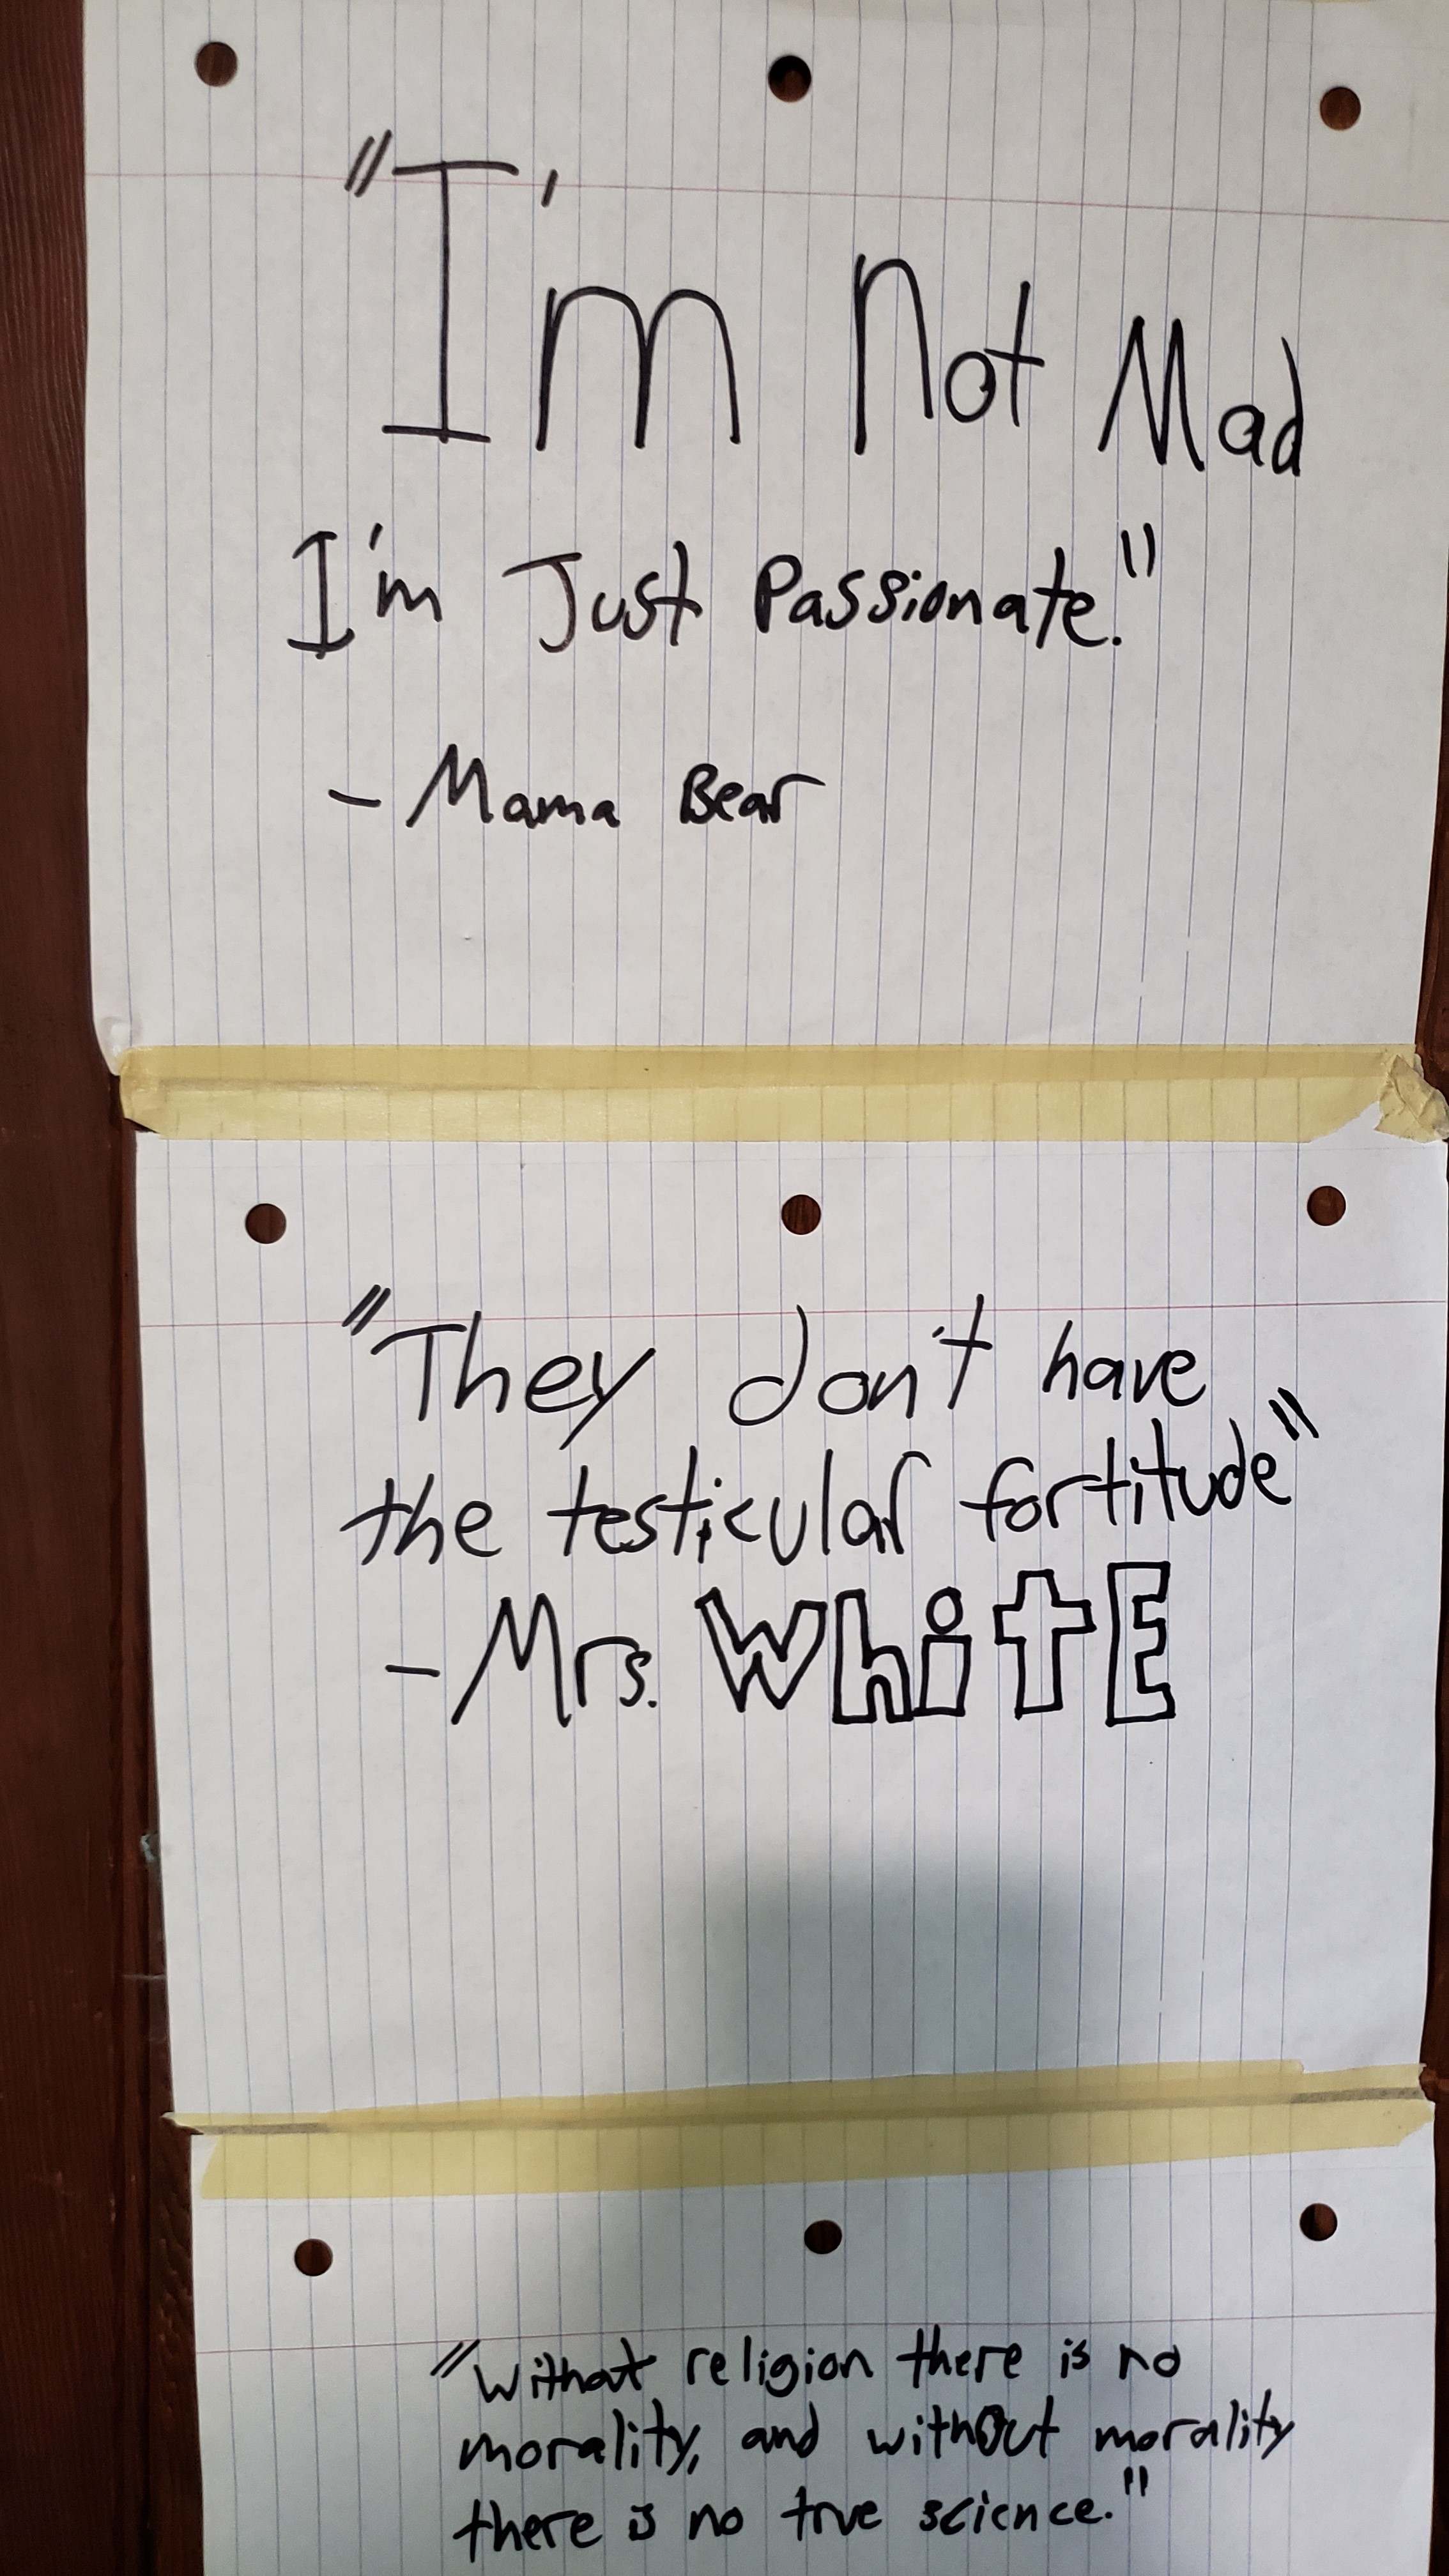 "I'm Not Mad
I'm Just Passionate."
- Mama Bear
"They don't have
the testicular fortitude"
- Mrs. WhitE
"Without religion there is no
morality, and without morality
there is no true science."